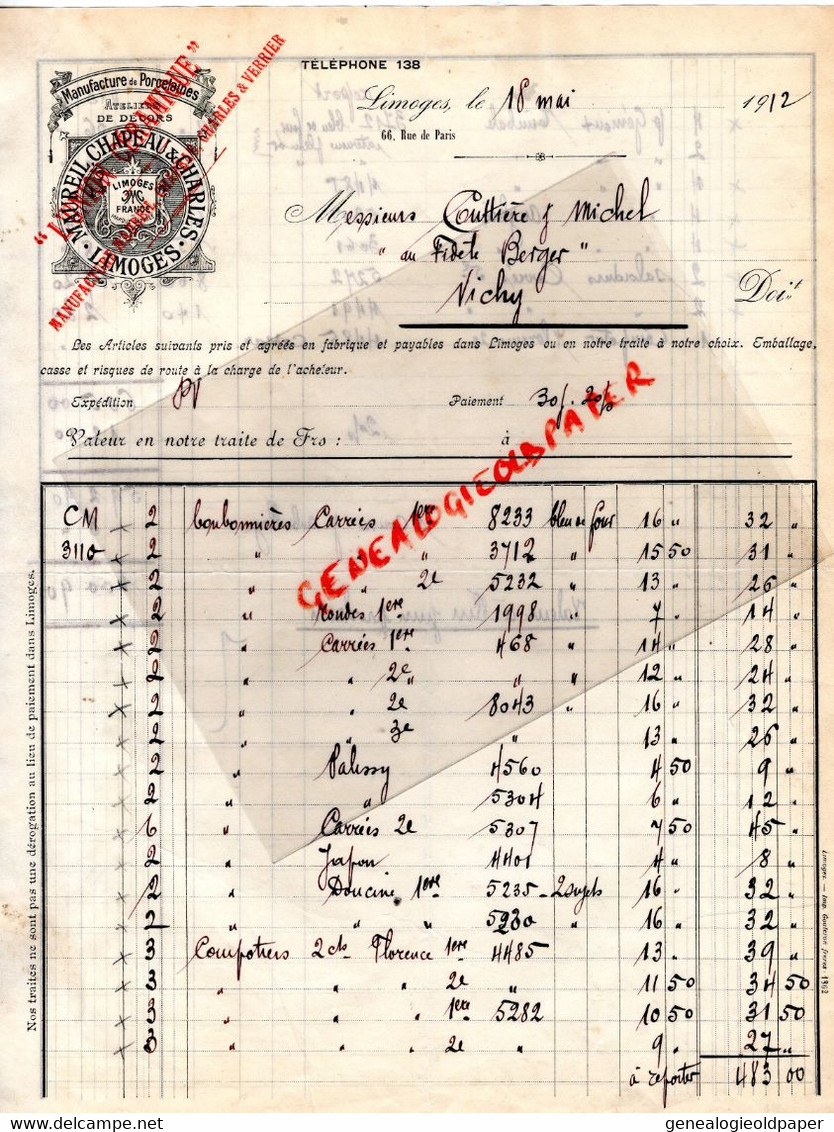 TÉLÉPHONE 138
Manufacture de Porcelaines
ATELIERS
DE DÉCORS
MAUREIL, CHAPEAU & CHARLES
LIMOGES
FRANCE
LIMOGES
MANUFACTURE
CHARLES & VERRIER
Limoges, le 18 mai 1912
66, Rue de Paris
Messieurs Michel
"au Fidèle Berger"
Vichy Doiv.t
Les Articles suivants pris et agréés en fabrique et payables dans Limoges ou en notre traite à notre choix. Emballage,
casse et risques de route à la charge de l'acheteur.
Expédition PV Paiement 30j. 2o/o
Valeur en notre traite de Frs : à
GENEALOGIEOLDPAPER
CM x 2 bonbonnières Carrées 1ere 8233 bleu de four 16 " 32 "
3110 x 2 " " " 3712 " 15 50 31 "
x 2 " " 2e 5232 " 13 " 26 "
x 2 " Rondes 1ere 1998 " 7 " 14 "
x 2 " Carrées 1ere 468 " 14 " 28 "
x 2 " " 2e " " 12 " 24 "
x 2 " " 2e 8043 " 16 " 32 "
x 2 " " 3e " 13 " 26 "
x 2 " Palissy 4560 4 50 9 "
x 2 " " 5304 6 " 12 "
x 6 " Carrées 2e 5307 7 50 45 "
x 2 " Japon 4401 4 " 8 "
x 2 " Doucine 1ere 5235 - 2 sujets 16 " 32 "
x 2 " " " 5230 " 16 " 32 "
x 3 Compotiers 2cts Florence 1ere 4485 13 " 39 "
x 3 " " " 2e " 11 50 34 50
x 3 " " " 1ere 5282 10 50 31 50
x 3 " " " 2e " 9 " 27 "
à reporter 483 00
Nos traites ne sont pas une dérogation au lieu de paiement dans Limoges.
genealogieoldpaper
delcampe.net